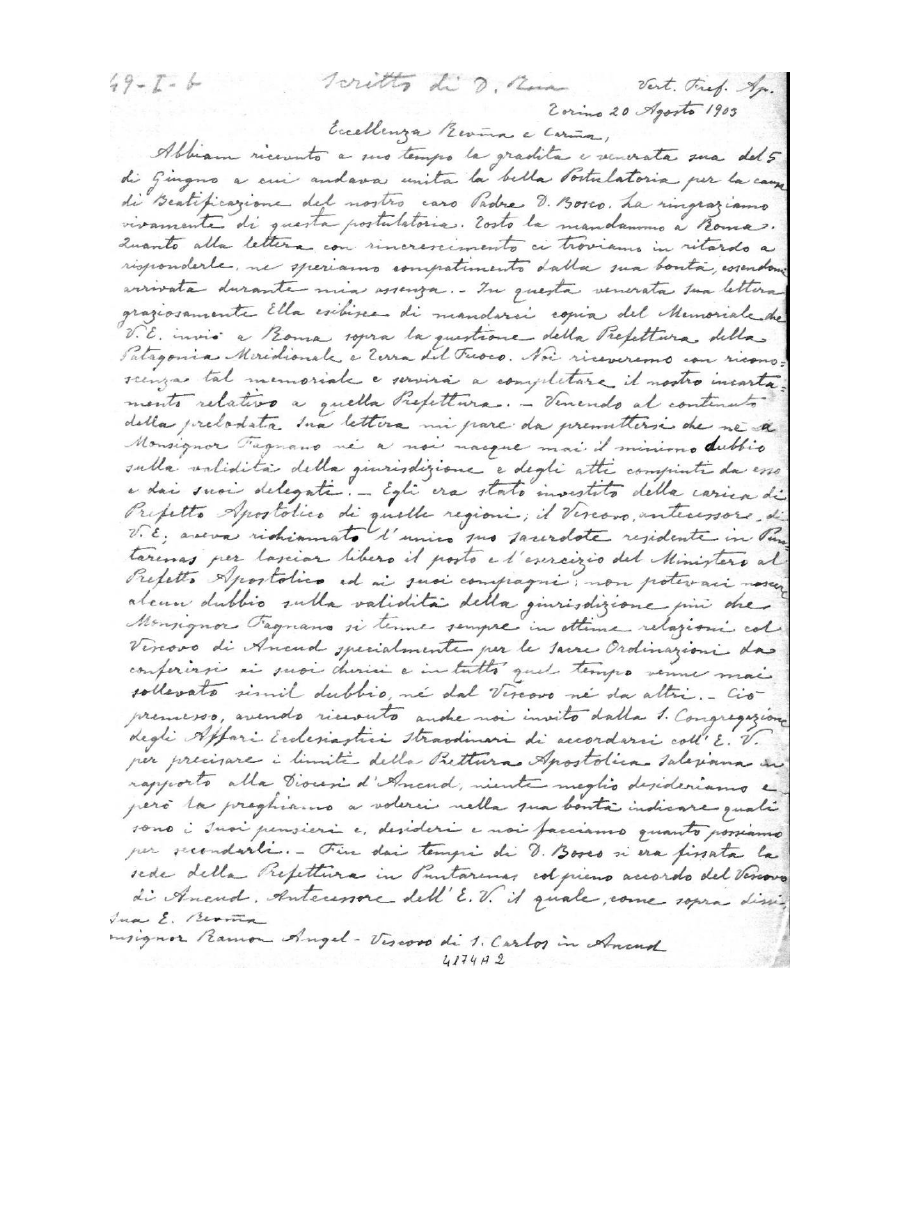 49-I-6 Scritto di D. Rua Vert. Pref. Ap.
Torino 20 Agosto 1903
Eccellenza Revm̃a e Carm̃a,
Abbiam ricevuto a suo tempo la gradita e venerata sua del 5
di Giugno a cui andava unita la bella Postulatoria per la causa
di Beatificazione del nostro caro Padre D. Bosco. La ringraziamo
vivamente di questa postulatoria. Tosto la mandammo a Roma.
Quanto alla lettera con rincrescimento ci troviamo in ritardo a
risponderle, ne speriamo compatimento dalla sua bontà, essendomi
arrivata durante mia assenza. - In questa venerata sua lettera
graziosamente Ella esibisce di mandarci copia del Memoriale che
V. E. inviò a Roma sopra la questione della Prefettura della
Patagonia Meridionale e Terra del Fuoco. Noi riceveremo con ricono=
scenza tal memoriale e servirà a completare il nostro incarta=
mento relativo a quella Prefettura. - Venendo al contenuto
della prelodata sua lettera mi pare da premettersi che nè a
Monsignor Fagnano nè a noi nacque mai il minimo dubbio
sulla validità della giurisdizione e degli atti compiuti da esso
e dai suoi delegati. - Egli era stato investito della carica di
Prefetto Apostolico di quelle regioni; il Vescovo, antecessore, di
V. E; aveva richiamato l'unico suo sacerdote residente in Pun=
tarenas per lasciar libero il posto e l'esercizio del Ministero al
Prefetto Apostolico ed ai suoi compagni; non potevaci nascere
alcun dubbio sulla validità della giurisdizione più che
Monsignor Fagnano si tenne sempre in ottime relazioni col
Vescovo di Ancud specialmente per le Sacre Ordinazioni da
conferirsi ai suoi chierici e in tutto quel tempo venne mai
sollevato simil dubbio, né dal Vescovo né da altri. - Ciò
premesso, avendo ricevuto anche noi invito dalla S. Congregazione
degli Affari Ecclesiastici straodinari di accordarci coll' E. V.
per precisare i limiti della Prettura Apostolica Salesiana in
rapporto alla Diocesi d'Ancud, niente meglio desideriamo e
però la preghiamo a volerci nella sua bontà indicare quali
sono i Suoi pensieri e, desideri e noi facciamo quanto possiamo
per secondarli. - Fin dai tempi di D. Bosco si era fissata la
sede della Prefettura in Puntarenas col pieno accordo del Vescovo
di Ancud, Antecessore dell' E. V. il quale, come sopra dissi,
Sua E. Revm̃a
onsignor Ramon Angel - Vescovo di S. Carlos in Ancud
4174A2